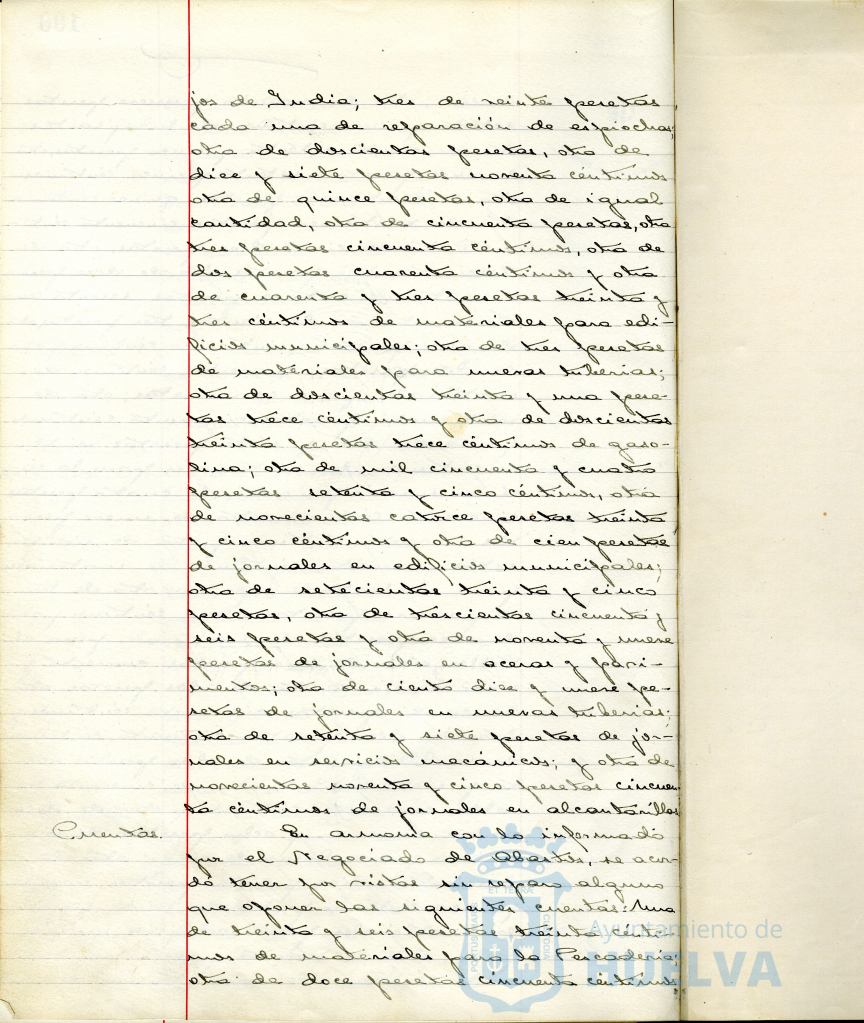 jos de India; tres de veinte pesetas
cada una de reparación de espiochas;
otra de doscientas pesetas, otra de
diez y siete pesetas noventa céntimos
otra de quince pesetas, otra de igual
cantidad, otra de cincuenta pesetas, otra
tres pesetas cincuenta céntimos, otra de
dos pesetas cuarenta céntimos y otra
de cuarenta y tres pesetas treinta y
tres céntimos de materiales para edi-
ficios municipales; otra de tres pesetas
de materiales para nuevas tuberias;
otra de doscientas treinta y una pese-
tas trece céntimos y otra de doscientas
treinta pesetas trece céntimos de gaso-
lina; otra de mil cincuenta y cuatro
pesetas setenta y cinco céntimos, otra
de novecientas catorce pesetas treinta
y cinco céntimos y otra de cien pesetas
de jornales en edificios municipales;
otra de setecientas treinta y cinco
pesetas, otra de trescientas cincuenta y
seis pesetas y otra de noventa y nueve
pesetas de jornales en aceras y pavi-
mentos; otra de ciento diez y nueve pe-
setas de jornales en nuevas tuberias;
otra de setenta y siete pesetas de jor-
nales en servicios mecánicos; y otra de
novecientas noventa y cinco pesetas cincuen
ta céntimos de jornales en alcantarillas
Cuentas. En armonia con lo informado
por el Negociado de Abastos, se acor-
dó tener por vistas sin reparo alguno
que oponer las siguientes cuentas: Una
de treinta y seis pesetas treinta cénti-
mos de materiales para la Pescaderia;
otra de doce pesetas cincuenta céntimos
Ayuntamiento de
HUELVA